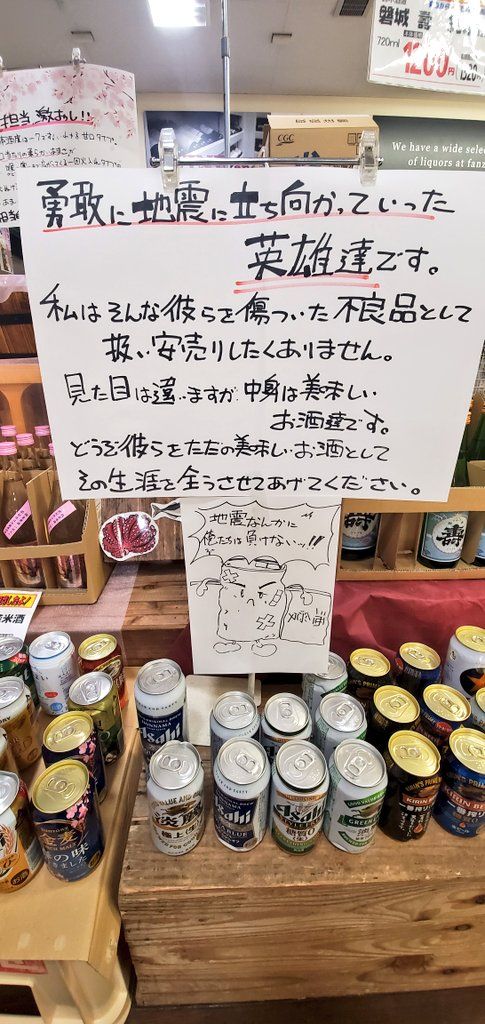 勇敢に地震に立ち向かっていった
英雄達です。
私はそんな彼らを傷ついた不良品として
扱い安売りしたくありません。
見た目は違いますが中身は美味しい
お酒達です。
どうぞ彼らをただの美味しいお酒として
その生涯を全うさせてあげてください。
地震なんかに
俺たちは負けないッ!!
磐城 壽
720ml
1200円
CGC
We have a wide selec
of liquors at fanz
担当激おし!!
米酒
Asahi
Asahi
Asahi
糖質0
淡麗
極上〈生〉
GREEN
KIRIN
一番搾り
KIRIN BE
一番搾り
の味